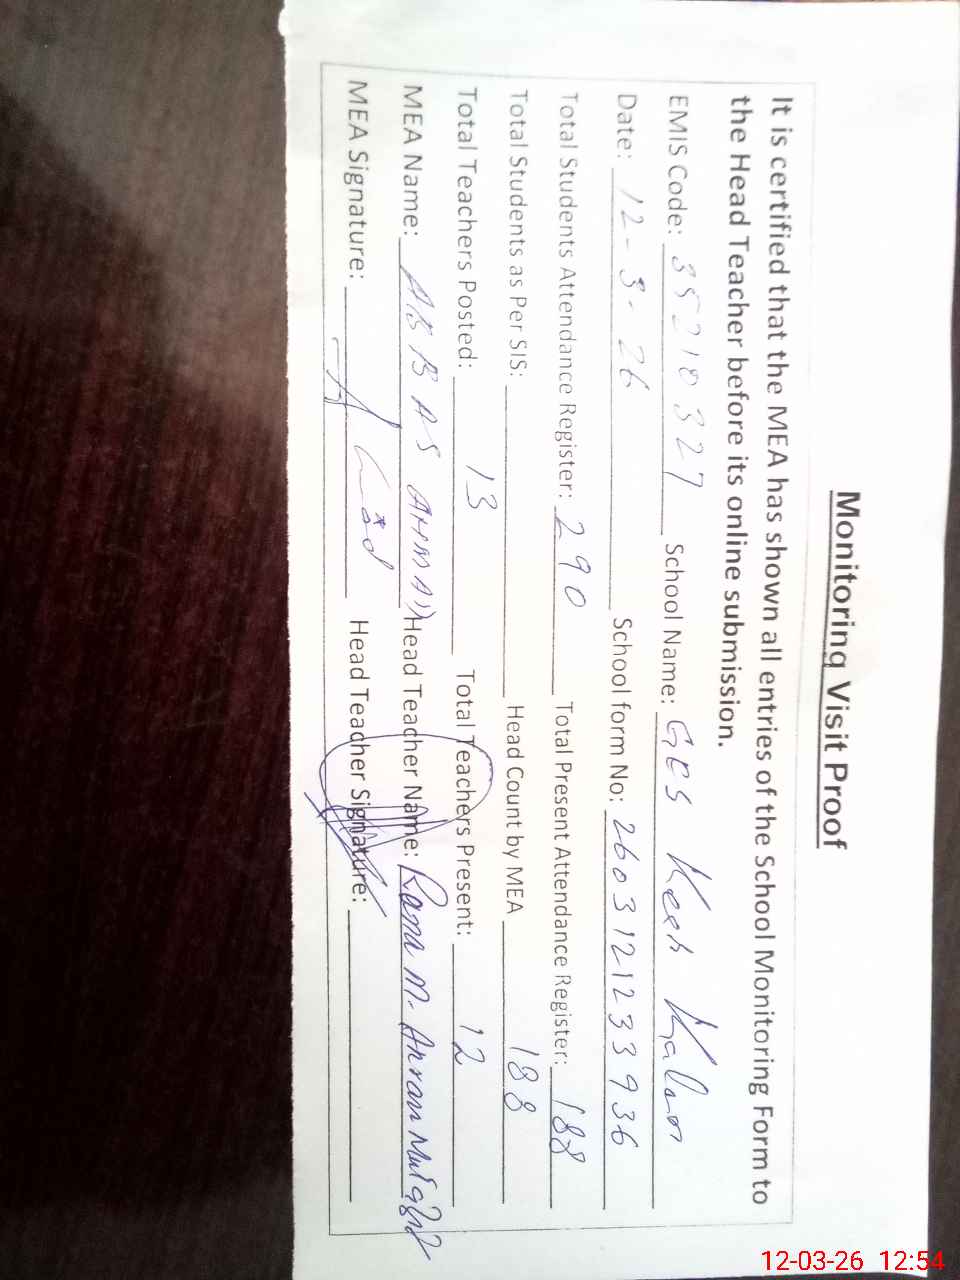 Monitoring Visit Proof
It is certified that the MEA has shown all entries of the School Monitoring Form to
the Head Teacher before its online submission.
EMIS Code: 35210327 School Name: GES Keeh Kalan
Date: 12-3-26 School form No: 260312123 3936
Total Students Attendance Register: 290 Total Present Attendance Register: 188
Total Students as Per SIS: Head Count by MEA 188
Total Teachers Posted: 13 Total Teachers Present: 12
MEA Name: ABBAS AHMAD Head Teacher Name: Rana M.
MEA Signature: Head Teacher Signature:
12-03-26 12:54